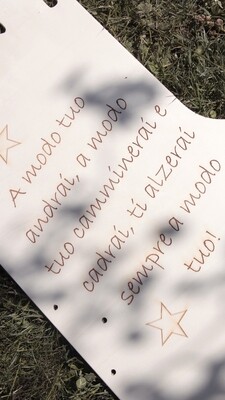 A modo tuo
andrai, a modo
tuo camminerai e
cadrai, ti alzerai
sempre a modo
tuo!